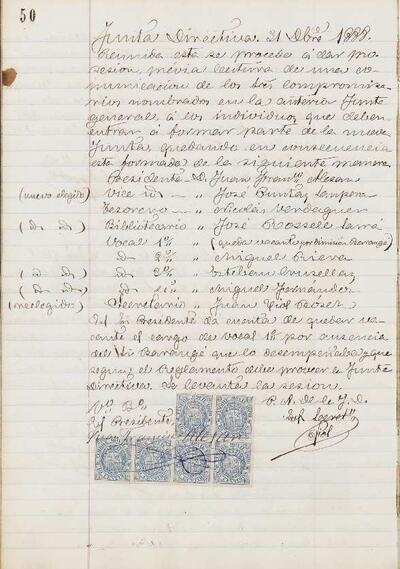 50
Junta Directiva 31 Dbre 1888.
Reunida esta se procede á dar po-
sesion, prévia lectura de una co-
municacion de los tres compromisa-
rios nombrados en la anterior Junta
general, á los individuos que deben
entrar á formar parte de la nueva
Junta, quedando en consecuencia
esta formada de la siguiente manera
Presidente D. Juan Alesan
(nuevo elegido) Vice id " José Puntas
Tesorero " Nicolás Verdaguer
(id id) Bibliotecario " José Rosselló Sarrá
Vocal 1º " (queda vacante por dimisión Barangé)
id 2º " Miguel Riera
(id id) id 3º " Estéban
(id id) id 4º " Miguel Fernández
(reelegido) Secretario " Juan Piol
El Sr Presidente da cuenta de quedar va-
cante el cargo de vocal 1º por ausencia
del Sr Barangé que lo desempeñaba y que
segun el Reglamento debe proveer la Junta
Directiva. Se levanta la sesion.
Vº Bº
El Presidente
P. A. de la J. D.
El Secretº
Piol